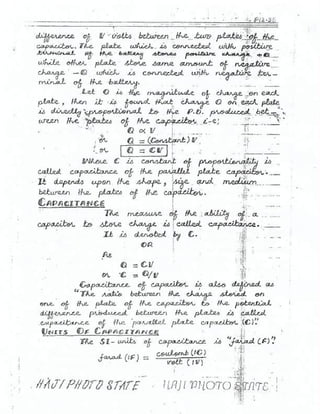 difference of V-volts between the two plates of the
capacitor. The plate which is connected with positive
terminal of the battery stores positive charge +Q
while other plate store same amount of negative
charge -Q which is connected with negative ter-
minal of the battery.
Let Q is the magnitude of charge on each
plate, then it is found that charge Q on each plate
is directly proportional to the P.D. produced bet-
ween the plates of the capacitor i-e;
Q ∝ V
or Q = (Constant) V
or Q = CV
Where C is constant of proportionality is
called capacitance of the parallel plate capacitor.
It depends upon the shape, size and medium
between the plates of the capacitor.
CAPACITANCE
The measure of the ability of a
capacitor to store charge is called capacitance.
It is denoted by C.
OR
As
Q = CV
or C = Q/V
Capacitance of capacitor is also defined as
"The ratio between the charge stored on
one of the plate of the capacitor to the potential
difference produced between the plates is called
capacitance of the parallel plate capacitor (C)."
UNITS OF CAPACITANCE
The SI-units of capacitance is "farad (F)."
farad (1F) = coulomb (1C)
volt (1V)
HAJI PHOTO STATE HAJI PHOTO STATE